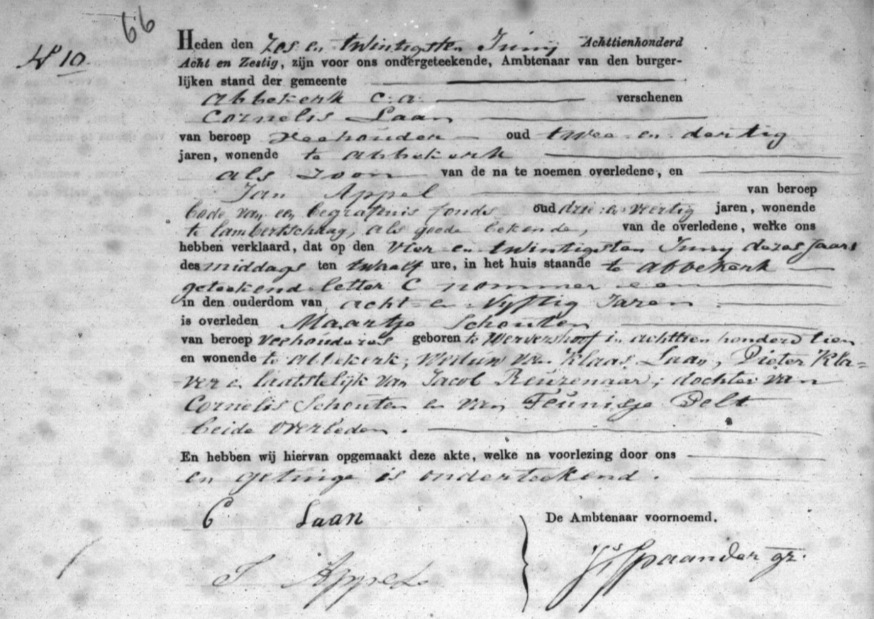 66
No 10.
Heden den Zes en twintigsten Junij Achttienhonderd
Acht en Zestig, zijn voor ons ondergeteekende, Ambtenaar van den burger-
lijken stand der gemeente
Abbekerk c.a. verschenen
Cornelis Laan
van beroep Veehouder oud twee en dertig
jaren, wonende te Abbekerk
als Zoon van de na te noemen overledene, en
Jan Appel van beroep
bode van een begrafenis fonds oud drie en veertig jaren, wonende
te Lambertschaag, als goede bekende, van de overledene, welke ons
hebben verklaard, dat op den Vier en twintigsten Junij dezes jaars
des middags ten twaalf ure, in het huis staande te Abbekerk
geteekend letter C nommer een
in den ouderdom van acht en vyftig Jaren
is overleden Maartje Schouten
van beroep veehouderes geboren te Wervershoof in achttienhonderd tien
en wonende te Abbekerk; Weduwe van Klaas Laan, Pieter Kla-
ver en laatstelijk van Jacob Reuzenaar; dochter van
Cornelis Schouten en van Teunisje Delt
beide overleden.
En hebben wij hiervan opgemaakt deze akte, welke na voorlezing door ons
en getuige is onderteekend.
C Laan
De Ambtenaar voornoemd,
J Appel
Spaander gz.